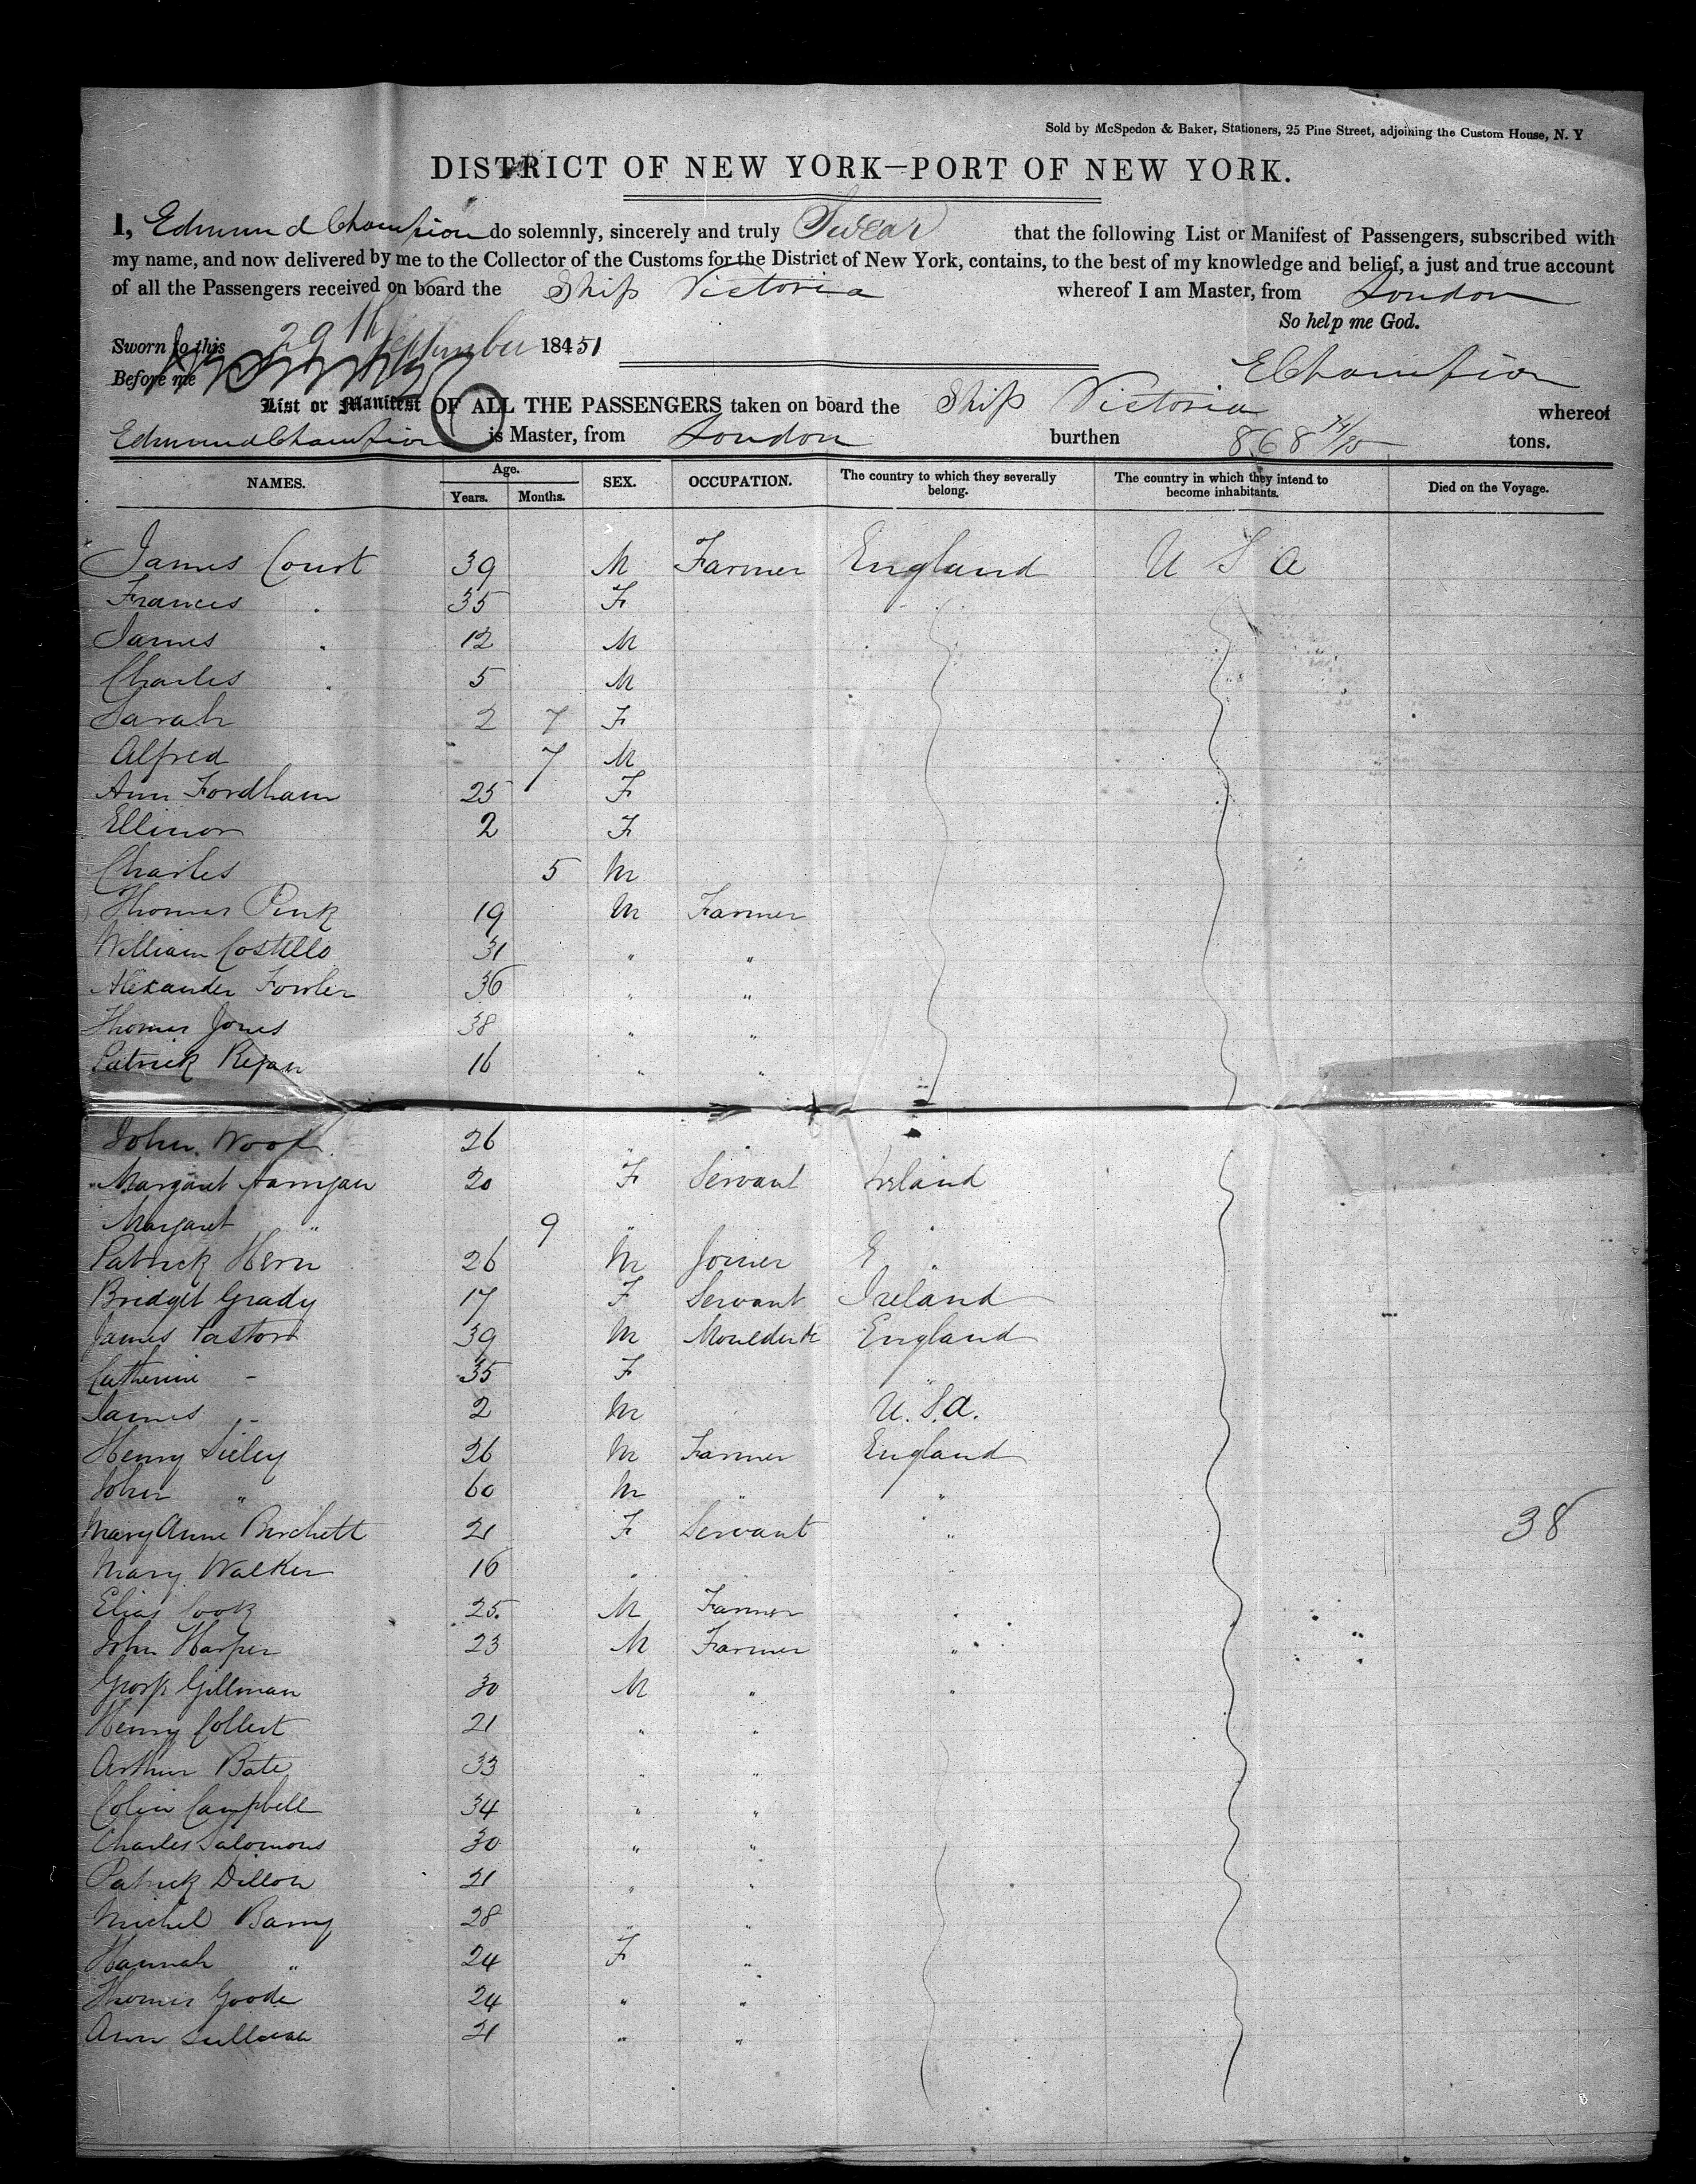 Sold by McSpedon & Baker, Stationers, 25 Pine Street, adjoining the Custom House, N. Y
DISTRICT OF NEW YORK—PORT OF NEW YORK.
I, Edmund Champion do solemnly, sincerely and truly Swear that the following List or Manifest of Passengers, subscribed with
my name, and now delivered by me to the Collector of the Customs for the District of New York, contains, to the best of my knowledge and belief, a just and true account
of all the Passengers received on board the Ship Victoria whereof I am Master, from London
So help me God.
Sworn to this 29th September 1851
Before me
E Champion
List or Manifest OF ALL THE PASSENGERS taken on board the Ship Victoria whereof
Edmund Champion is Master, from London burthen 868 tons.
NAMES. Age. Years. Months. SEX. OCCUPATION. The country to which they severally belong. The country in which they intend to become inhabitants. Died on the Voyage.
James Court 39 M Farmer England U S A
Frances 35 F
James 12 M
Charles 5 M
Sarah 2 7 F
Alfred 7 M
Ann Fordham 25 F
Ellinor 2 F
Charles 5 M
Thomas Pink 19 M Farmer
William Costello 31 " "
Alexander Fowler 36 " "
Thomas Jones 38 " "
Patrick 16 " "
John 26 "
Margaret 20 F Servant Ireland
Margaret " 9 "
Patrick Hern 26 M Joiner E
Bridget Grady 17 F Servant Ireland
James 39 M England
Catherine - 35 F
James - 2 M U.S.A.
Henry Sieley 26 M Farmer England
John " 60 M " "
Mary Anne Burchett 21 F Servant " 38
Mary Walker 16 " "
Elias Cook 25 M Farmer "
John Harper 23 M Farmer "
Gillman 30 M " "
Henry Collert 21 " "
Arthur Bate 33 " "
Colin Campbell 34 " "
Charles Salomons 30 " "
Patrick Dillon 21 " "
Michel Barry 28 " "
Hannah " 24 F "
Thomas Goode 24 " "
Ann Sullivan 21 " "